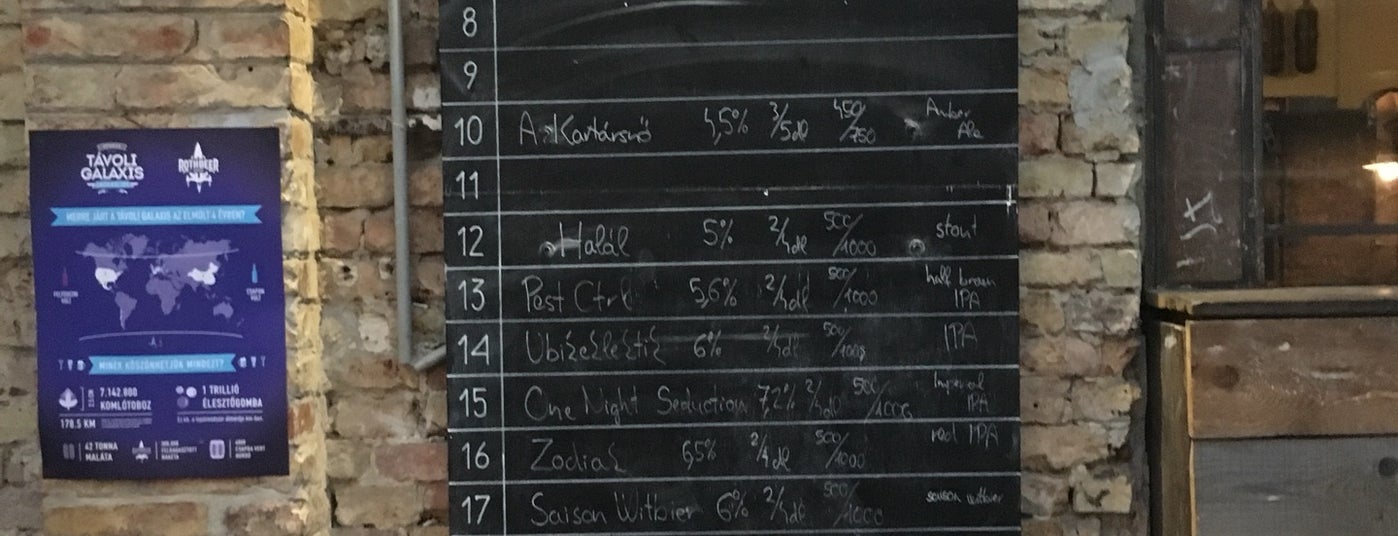 8
9
10 A. Kartársnő 4,5% 3/5dl 450/750 Amber Ale
11
12 Halál 5% 2/4dl 500/1000 stout
13 Pest Ctrl 5,6% 2/4dl 500/1000 half brown IPA
14 6% 2/4dl 500/1000 IPA
15 One Night Seduction 7,2% 2/4dl 500/1000 Imperial IPA
16 Zodiak 6,5% 2/4dl 500/1000 red IPA
17 Saison Witbier 6% 2/4dl 500/1000 saison witbier
TÁVOLI
GALAXIS
ROTHBEER
MERRE JÁRT A TÁVOLI GALAXIS AZ ELMÚLT 4 ÉVBEN?
FELFORDÍTOTT
VOLT
CSAPON
VOLT
MINEK KÖSZÖNHETJÜK MINDEZT?
7.142.800
KOMLÓTOBOZ
178.5 KM
1 TRILLIÓ
ÉLESZTŐGOMBA
42 TONNA
MALÁTA
RAKÉTA